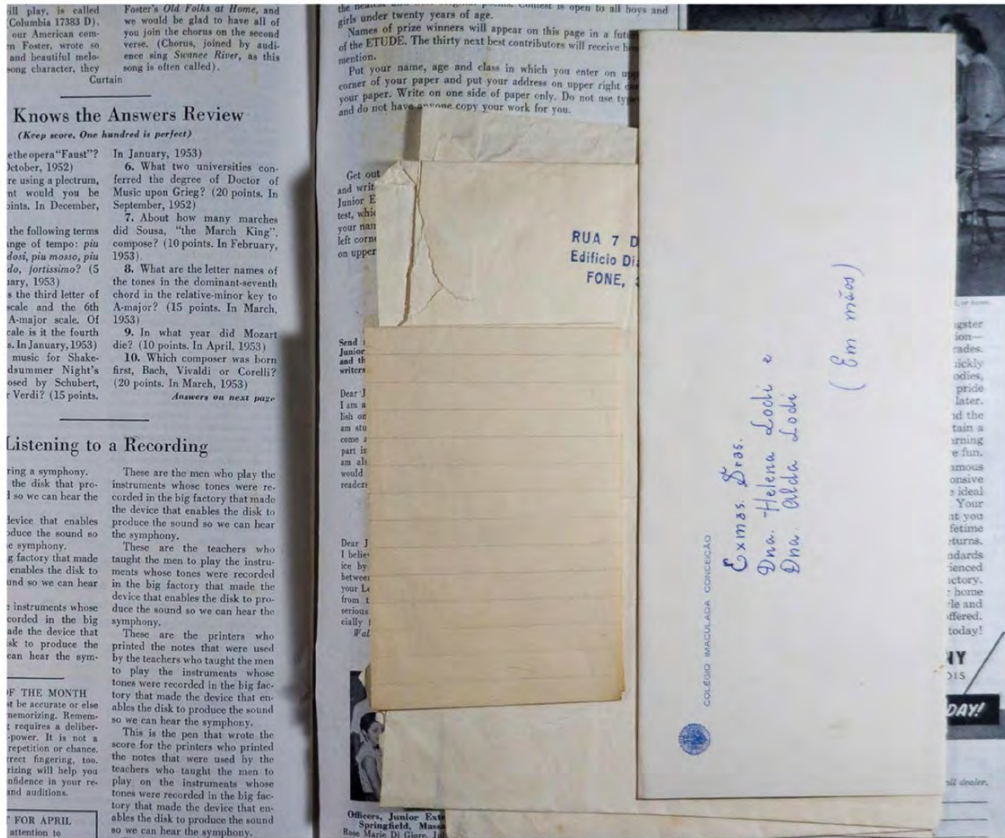 ill play, is called
Columbia 17383 D).
our American com-
n Foster, wrote so
and beautiful melo-
song character, they
Foster's Old Folks at Home, and
we would be glad to have all of
you join the chorus on the second
verse. (Chorus, joined by audi-
ence sing Swanee River, as this
song is often called).
Curtain
Knows the Answers Review
(Keep score. One hundred is perfect)
the opera "Faust"?
October, 1952)
re using a plectrum,
nt would you be
oints. In December,
the following terms
nge of tempo: piu
dosi, piu mosso, piu
do, fortissimo? (5
uary, 1953)
s the third letter of
scale and the 6th
A-major scale. Of
cale is it the fourth
s. In January, 1953)
music for Shake-
dsummer Night's
osed by Schubert,
r Verdi? (15 points.
In January, 1953)
6. What two universities con-
ferred the degree of Doctor of
Music upon Grieg? (20 points. In
September, 1952)
7. About how many marches
did Sousa, "the March King",
compose? (10 points. In February,
1953).
8. What are the letter names of
the tones in the dominant-seventh
chord in the relative-minor key to
A-major? (15 points. In March,
1953)
9. In what year did Mozart
die? (10 points. In April, 1953)
10. Which composer was born
first, Bach, Vivaldi or Corelli?
(20 points. In March, 1953)
Answers on next page
Listening to a Recording
ring a symphony.
the disk that pro-
d so we can hear the
device that enables
oduce the sound so
e symphony.
g factory that made
enables the disk to
und so we can hear
instruments whose
corded in the big
ade the device that
sk to produce the
can hear the sym-
These are the men who play the
instruments whose tones were re-
corded in the big factory that made
the device that enables the disk to
produce the sound so we can hear
the symphony.
These are the teachers who
taught the men to play the instru-
ments whose tones were recorded
in the big factory that made the
device that enables the disk to pro-
duce the sound so we can hear the
symphony.
These are the printers who
printed the notes that were used
by the teachers who taught the men
to play the instruments whose
tones were recorded in the big fac-
tory that made the device that en-
ables the disk to produce the sound
so we can hear the symphony.
This is the pen that wrote the
score for the printers who printed
the notes that were used by the
teachers who taught the men to
play on the instruments whose
tones were recorded in the big fac-
tory that made the device that en-
ables the disk to produce the sound
so we can hear the symphony.
OF THE MONTH
t be accurate or else
memorizing. Remem-
requires a deliber-
-power. It is not a
repetition or chance.
rrect fingering, too.
rizing will help you
nfidence in your re-
and auditions.
FOR APRIL
attention to
girls under twenty years of age.
Names of prize winners will appear on this page in a
of the ETUDE. The thirty next best contributors will receive
mention.
Put your name, age and class in which you enter on
corner of your paper and put your address on upper right
your paper. Write on one side of paper only. Do not use
and do not have anyone copy your work for you.
Get out
and
Junior E
test,
your
left
on upper
Send
Junior
and
writers
Dear J
I am a
am
come
part is
am
would
reader
Dear J
I
ice by
between
your
from
serious
cially
Officers, Junior
Springfield,
Rose Marie Di
RUA 7 D
Edificio
FONE,
COLÉGIO IMACULADA CONCEIÇÃO
Exmas. Sras.
Dna. Helena Lodi e
Dna. Alda Lodi
(Em mãos)
or home.
ngster
ion—
rades.
uickly
odies,
pride
later.
nd the
tain a
arning
e fun.
amous
onsive
ideal
Your
nt you
fetime
eturns.
ndards
ienced
actory.
home
le and
offered.
today!
NY
OIS
DAY!
dealer.